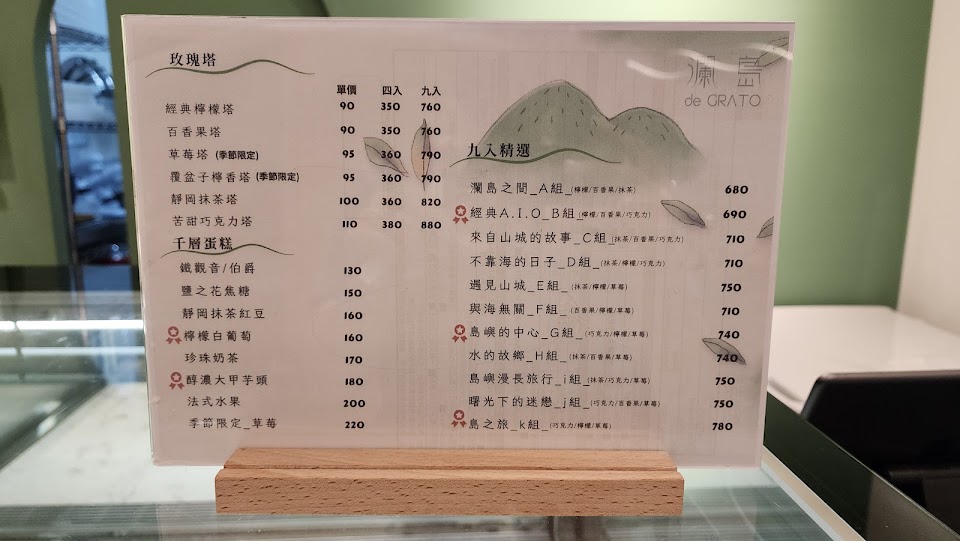 玫瑰塔
單價 四入 九入
經典檸檬塔 90 350 760
百香果塔 90 350 760
草莓塔 (季節限定) 95 360 790
覆盆子檸香塔 (季節限定) 95 360 790
靜岡抹茶塔 100 360 820
苦甜巧克力塔 110 380 880
千層蛋糕
鐵觀音/伯爵 130
鹽之花焦糖 150
靜岡抹茶紅豆 160
檸檬白葡萄 160
珍珠奶茶 170
醇濃大甲芋頭 180
法式水果 200
季節限定_草莓 220
瀾島
de GRATO
九入精選
瀾島之間_A組_(檸檬/百香果/抹茶) 680
經典A.I.O_B組_(檸檬/百香果/巧克力) 690
來自山城的故事_C組_(抹茶/百香果/巧克力) 710
不靠海的日子_D組_(抹茶/檸檬/巧克力) 710
遇見山城_E組_(抹茶/檸檬/草莓) 750
與海無關_F組_(百香果/檸檬/草莓) 710
島嶼的中心_G組_(巧克力/檸檬/草莓) 740
水的故鄉_H組_(抹茶/百香果/草莓) 740
島嶼漫長旅行_i組_(抹茶/巧克力/草莓) 750
曙光下的迷戀_j組_(巧克力/百香果/草莓) 750
島之旅_k組_(巧克力/檸檬/草莓) 780